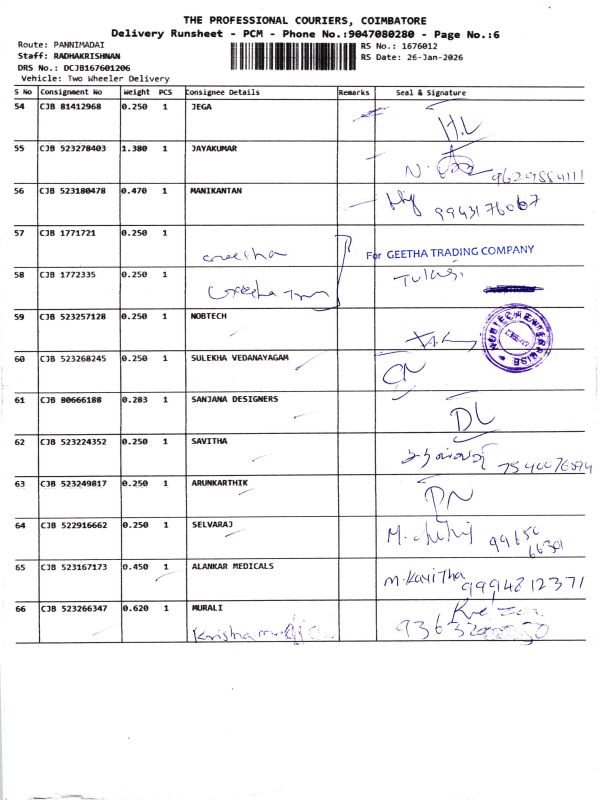 THE PROFESSIONAL COURIERS, COIMBATORE
Delivery Runsheet - PCM - Phone No.:9047080280 - Page No.:6
Route: PANNIMADAI
RS No.: 1676012
Staff: RADHAKRISHNAN
RS Date: 26-Jan-2026
DRS No.: DCJB167601206
Vehicle: Two Wheeler Delivery
S No Consignment No Weight PCS Consignee Details Remarks Seal & Signature
54 CJB 81412968 0.250 1 JEGA
H.L
55 CJB 523278403 1.380 1 JAYAKUMAR
56 CJB 523180478 0.470 1 MANIKANTAN
9943176067
57 CJB 1771721 0.250 1
Geetha
For GEETHA TRADING COMPANY
58 CJB 1772335 0.250 1
Tulasi
Geetha
59 CJB 523257128 0.250 1 NOBTECH
60 CJB 523268245 0.250 1 SULEKHA VEDANAYAGAM
61 CJB 80666188 0.283 1 SANJANA DESIGNERS
DL
62 CJB 523224352 0.250 1 SAVITHA
63 CJB 523249817 0.250 1 ARUNKARTHIK
PN
64 CJB 522916662 0.250 1 SELVARAJ
65 CJB 523167173 0.450 1 ALANKAR MEDICALS
M.Kavitha 9994812371
66 CJB 523266347 0.620 1 MURALI